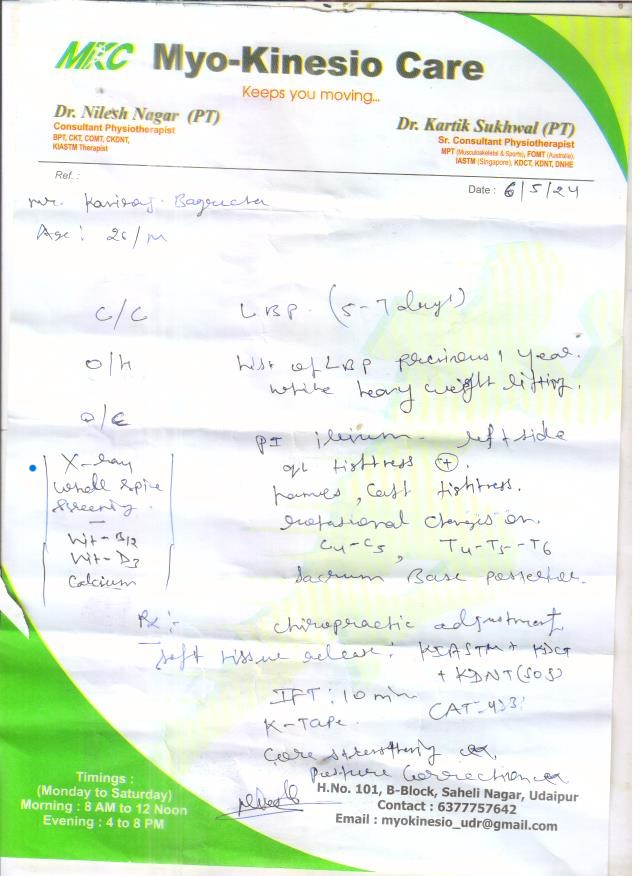 MKC Myo-Kinesio Care
Keeps you moving...
Dr. Nilesh Nagar (PT)
Consultant Physiotherapist
BPT, CKT, COMT, CKDNT,
KIASTM Therapist
Dr. Kartik Sukhwal (PT)
Sr. Consultant Physiotherapist
MPT (Musculoskeletal & Sports), FOMT (Australia),
IASTM (Singapore), KDCT, KDNT, DNHE
Ref. :
Date : 6/5/24
Mr.
Age: 26/M
C/C LBP. (5-7 days)
O/H Hist of LBP previous 1 year.
while heavy weight lifting.
O/E
PI ilium - left side
X-ray
QL tightness +.
whole spine
tightness.
screening
rotational changes on
Vit-B12
C4-C5, T4-T5-T6
Vit-D3
Calcium
Sacrum Base posterior.
Rx:- chiropractic adjustment
Soft tissue release: KIASTM + KDCT
+ KDNT (SOS)
IFT: 10 min
K-Tape.
Core strengthening
Posture correction
Timings :
(Monday to Saturday)
Morning : 8 AM to 12 Noon
Evening : 4 to 8 PM
H.No. 101, B-Block, Saheli Nagar, Udaipur
Contact : 6377757642
Email : myokinesio_udr@gmail.com